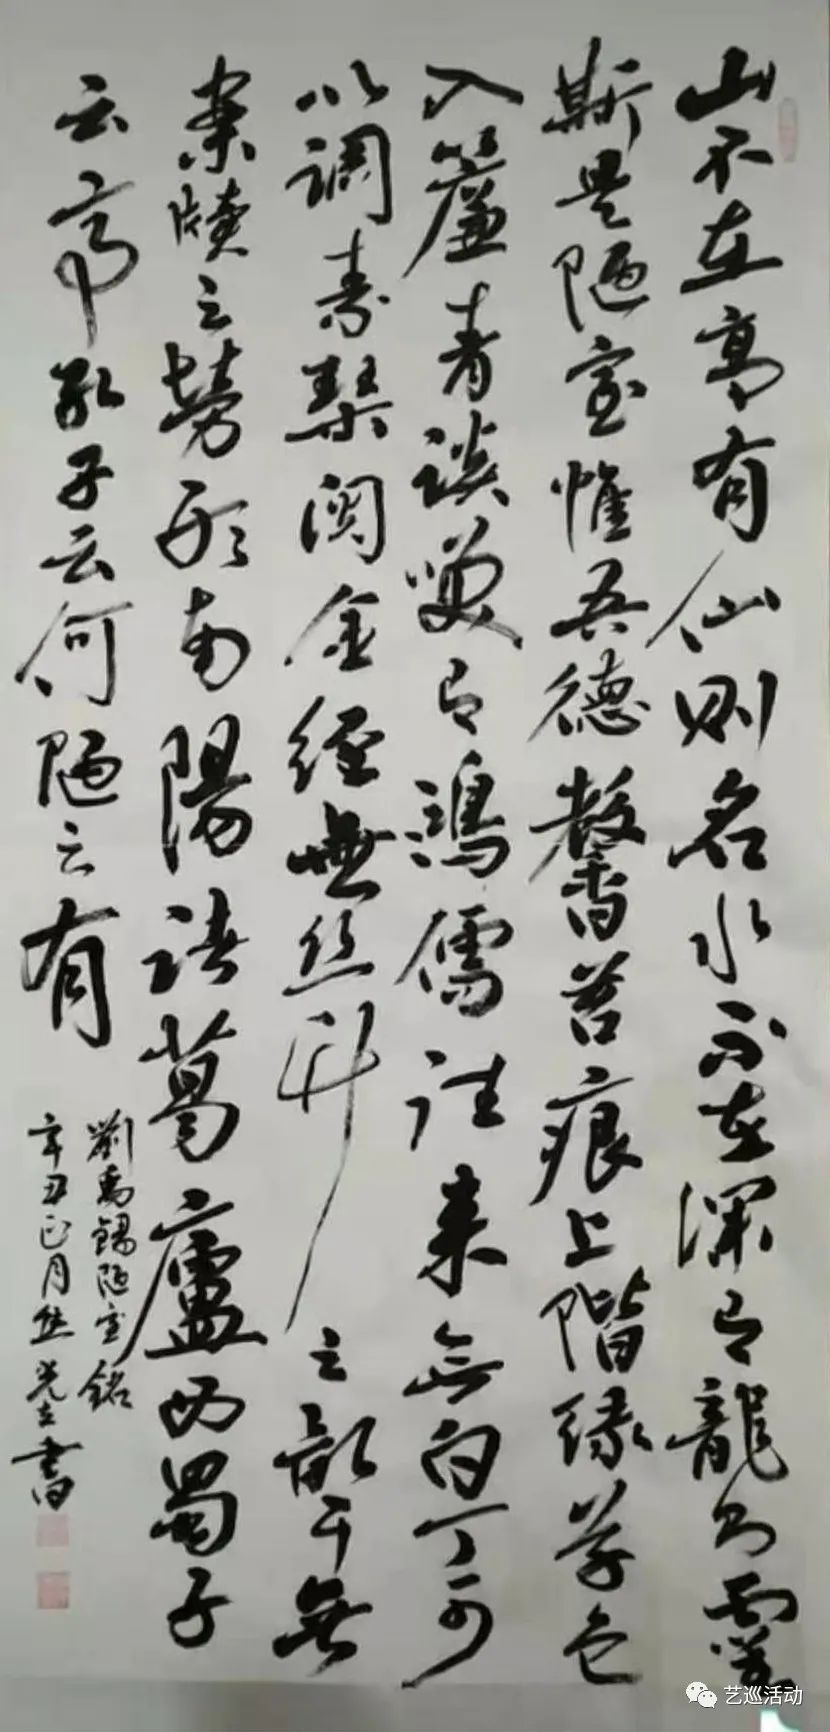 山不在高有仙则名水不在深有龍则靈
斯是陋室惟吾德馨苔痕上階緑草色
入簾青談笑有鴻儒往来無白丁可
以調素琴閲金經無丝竹之亂耳無
案牘之勞形南陽諸葛廬西蜀子
云亭孔子云何陋之有
劉禹錫陋室銘
辛丑正月書
艺巡活动